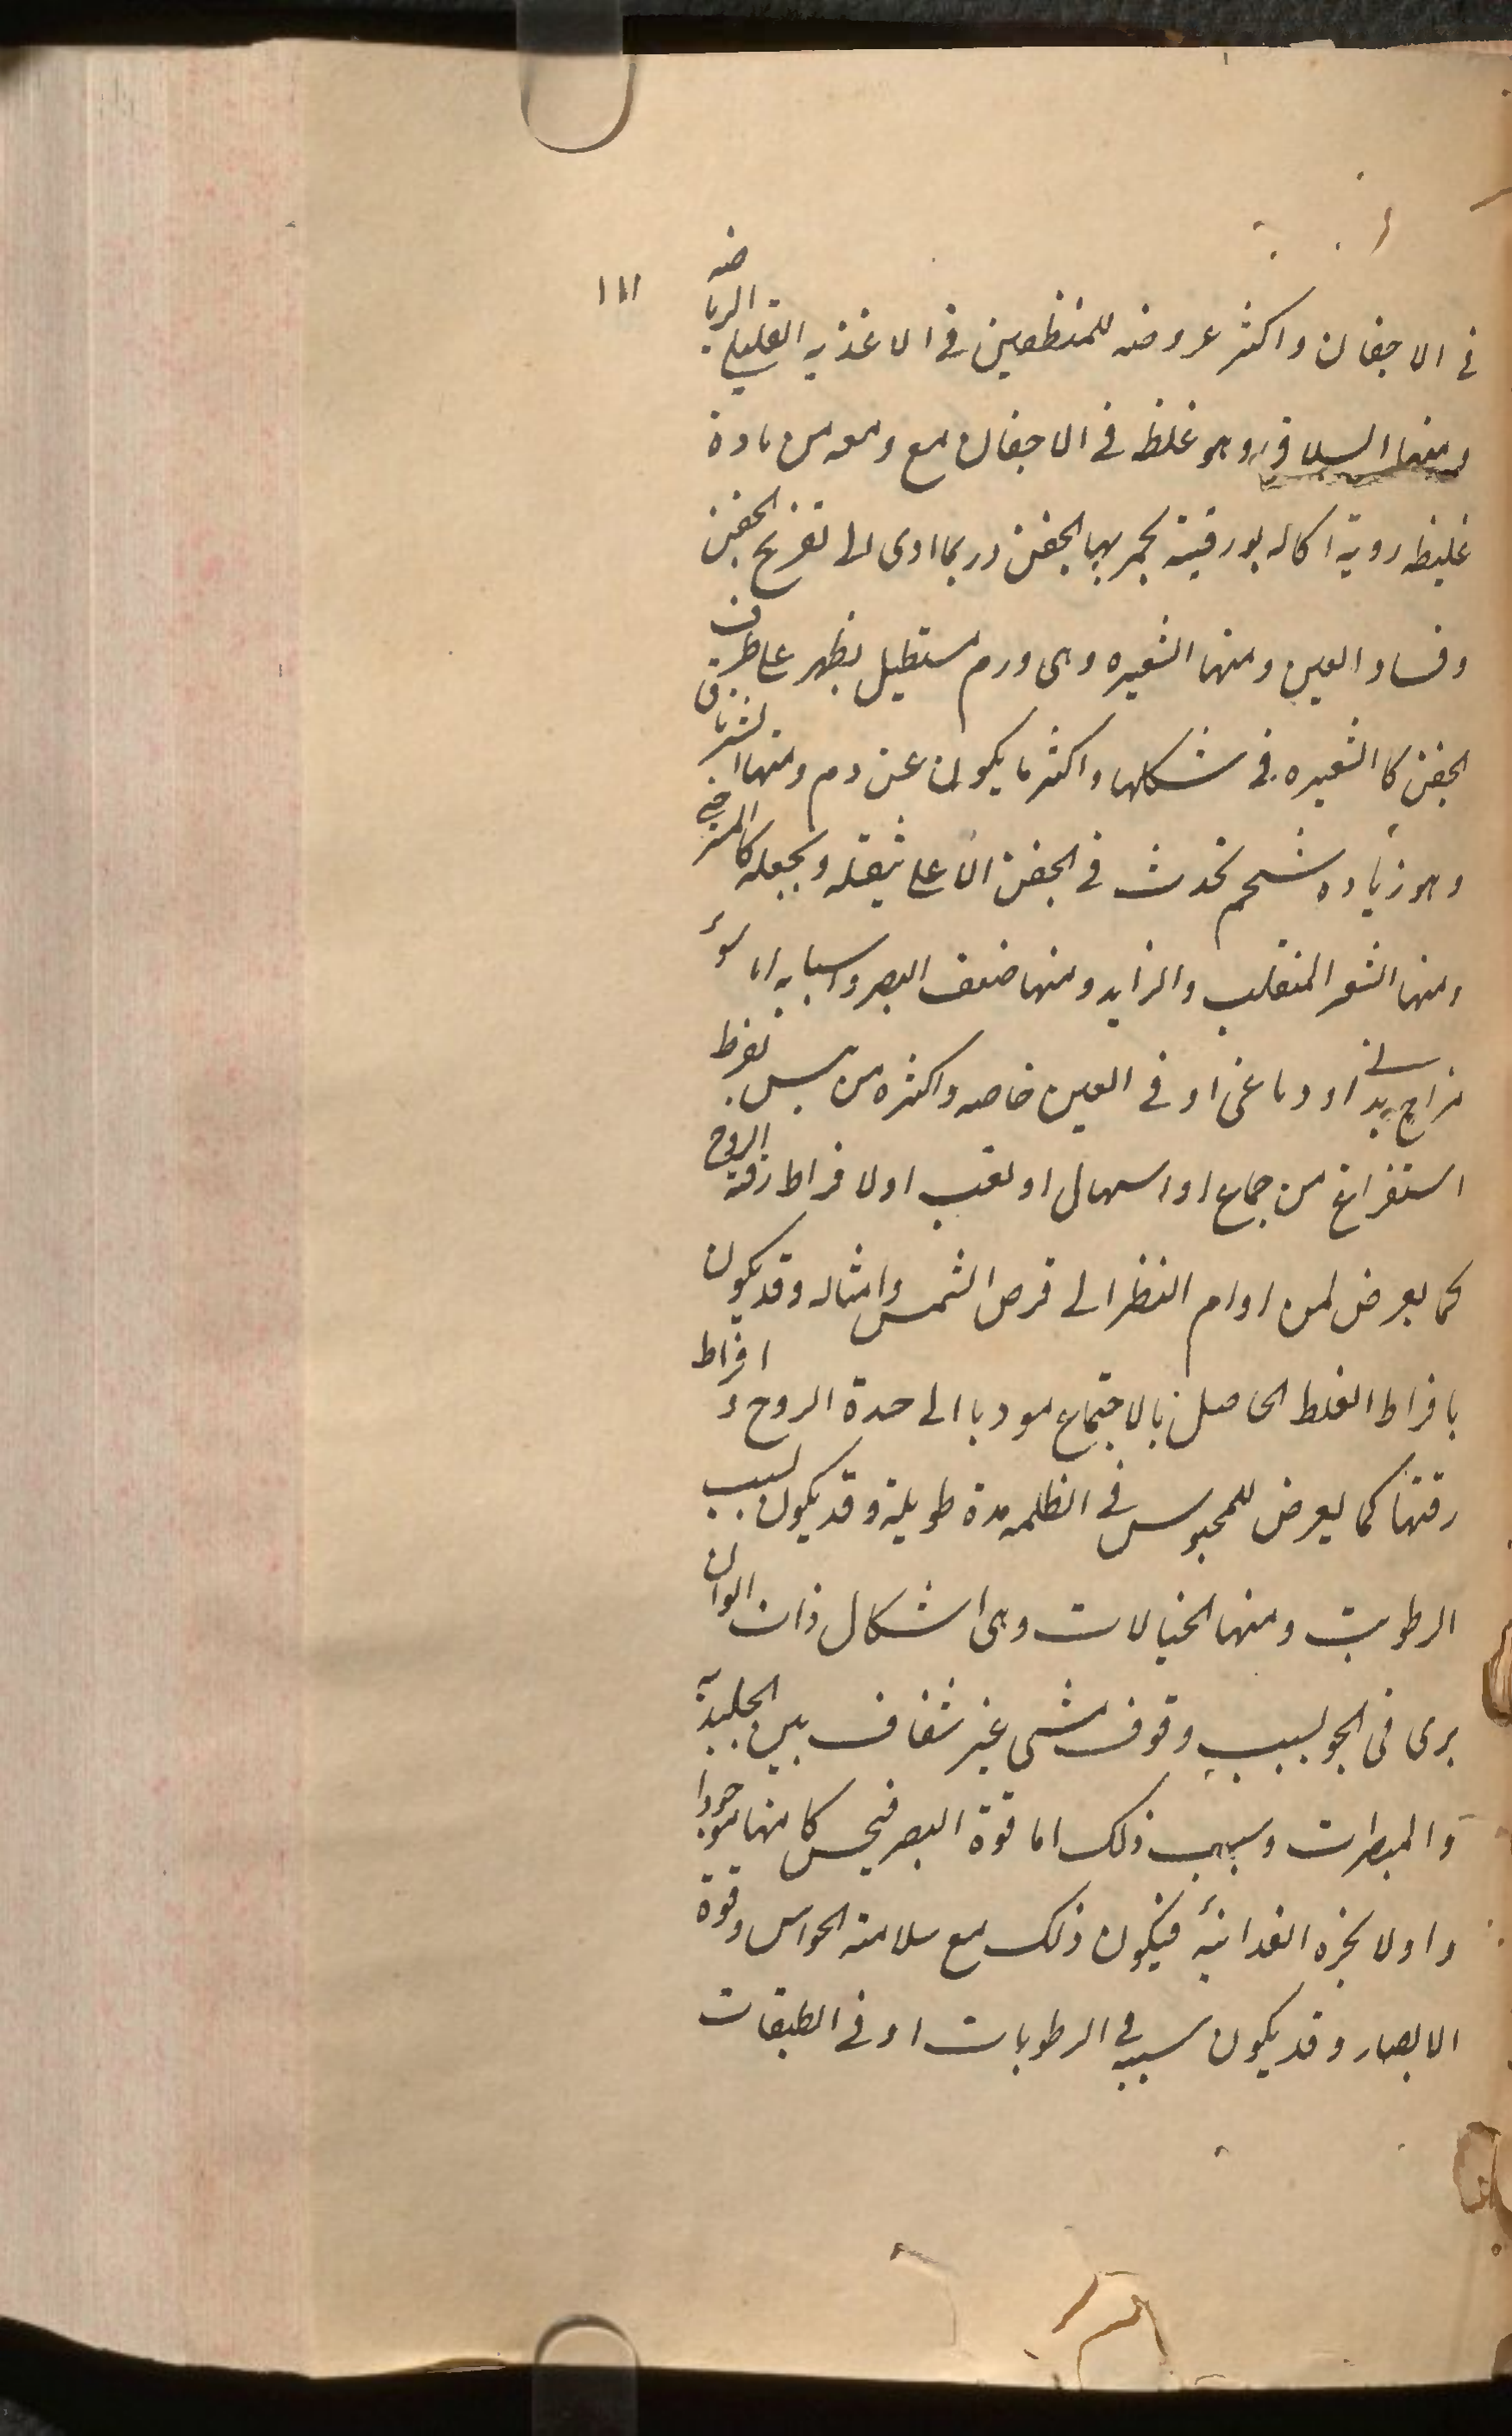 ١١١
في الاجفان واكثر عروضه للمنظفين في الاغذيه القليلي الرياضه
ومنها السلاق وهو غلظ في الاجفان مع ومعه من مادة
غليظه روية اكاله بورقية يحمر بها الجفن وربما ادى الى تقريح الجفن
وفساد العين ومنها الشعيره وهى ورم مستطيل يظهر على طرف
الجفن كالشعيره في شكلها واكثر ما يكون عن دم ومنها الشرناق
وهو زياده شحم تحدث في الجفن الاعلى يثقله ويجعله كالمسترخي
ومنها الشعر المنقلب والزايد ومنها ضعف البصر واسبابه اما سوء
مزاج بدنى او دماغى او في العين خاصه واكثره من يبس بفرط
استفراغ من جماع او اسهال او تعب او لافراط رقة الروح
كما يعرض لمن ادام النظر الى قرص الشمس وامثاله وقد يكون
بافراط الغلط الحاصل بالاجتماع موديا الى حدة الروح و افراط
رقتها كما يعرض للمحبوس في الظلمه مدة طويلة وقد يكون لسبب
الرطوبة ومنها الخيالات وهى اشكال ذات الوان
يرى فى الجو لسبب وقوف شى غير شفاف بين الجليديه
والمبصرات وسبب ذلك اما قوة البصر فيحس كامنها موجودا
واو لابخره الغدائيه فيكون ذلك مع سلامة الحواس وقوة
الابصار وقد يكون سببه في الرطوبات او في الطبقات